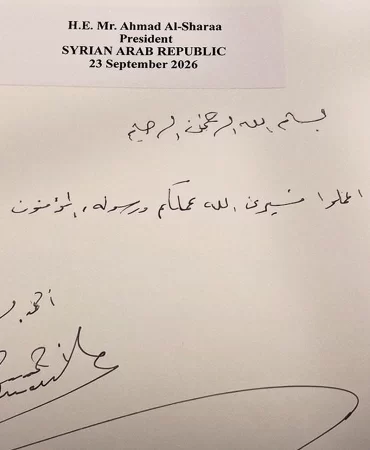 H.E. Mr. Ahmad Al-Sharaa
President
SYRIAN ARAB REPUBLIC
23 September 2026
بسم الله الرحمن الرحيم
اعملوا فسيرى الله عملكم ورسوله والمؤمنون